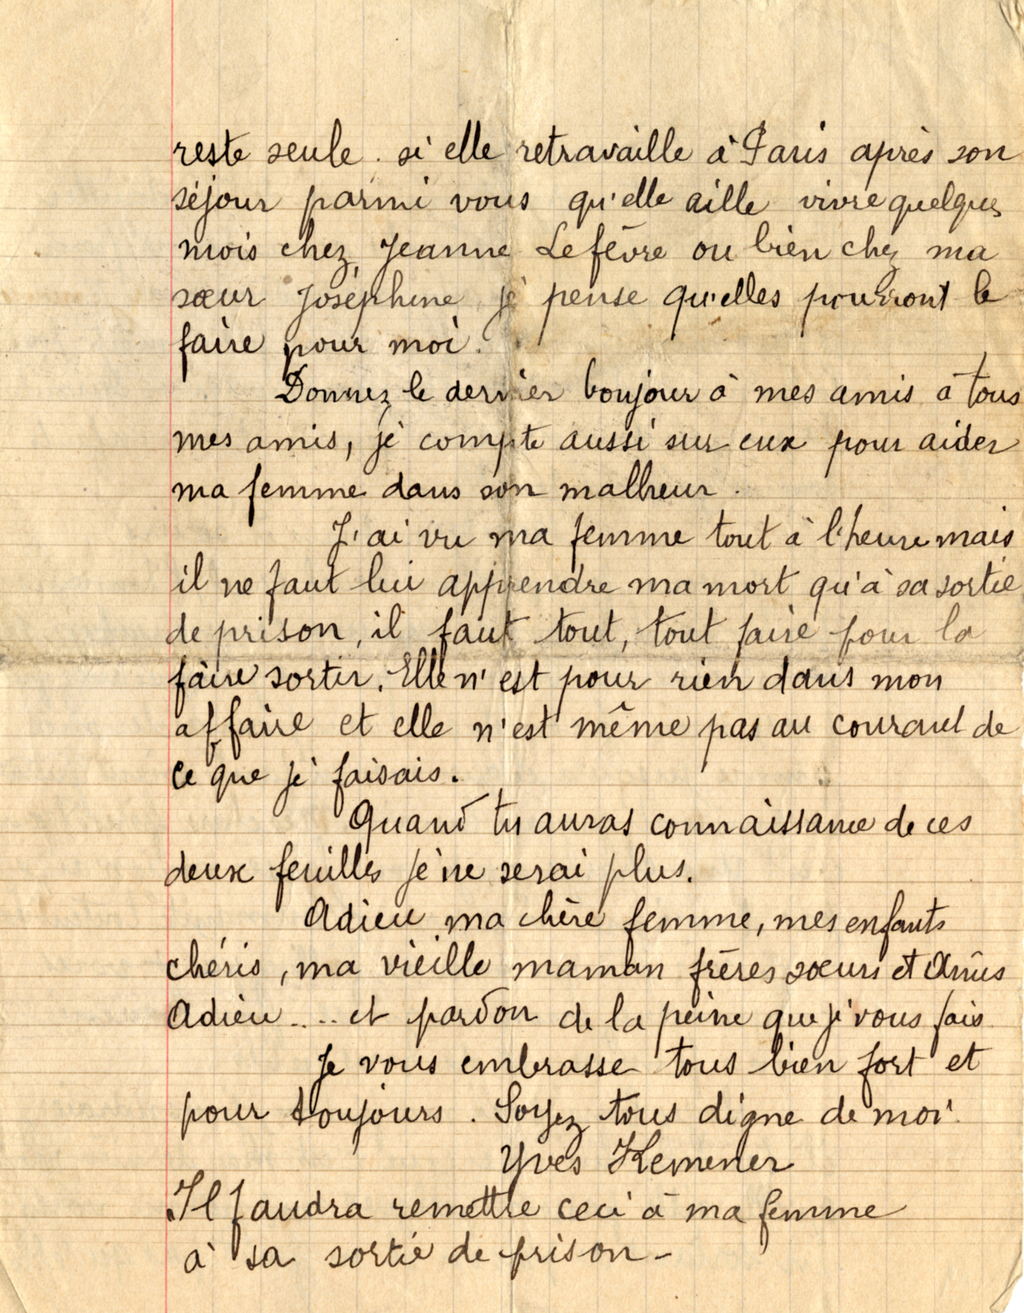 reste seule. si elle retravaille à Paris après son
séjour parmi vous qu'elle aille vivre quelques
mois chez Jeanne Lefèvre ou bien chez ma
sœur Joséphine je pense qu'elles pourront le
faire pour moi.
Donnez le dernier bonjour à mes amis a tous
mes amis, je compte aussi sur eux pour aider
ma femme dans son malheur.
J'ai vu ma femme tout à l'heure mais
il ne faut lui apprendre ma mort qu'à sa sortie
de prison, il faut tout, tout faire pour la
faire sortir. Elle n'est pour rien dans mon
affaire et elle n'est même pas au courant de
ce que je faisais.
Quand tu auras connaissance de ces
deux feuilles je ne serai plus.
Adieu ma chère femme, mes enfants
chéris, ma vieille maman frères sœurs et Amis
Adieu .... et pardon de la peine que je vous fais
Je vous embrasse tous bien fort et
pour toujours. Soyez tous digne de moi.
Yves Kemener
Il faudra remettre ceci à ma femme
à sa sortie de prison -